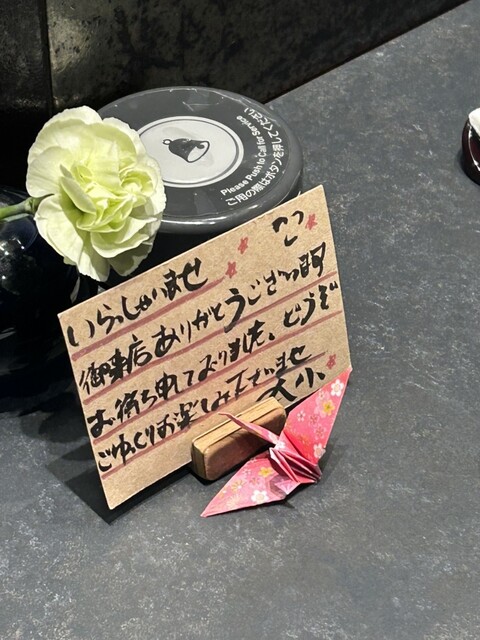 Please Push to Call for Service
ご用の際はボタンを押してください
いらっしゃいませ
御来店ありがとうございます
お待ち申しておりました。どうぞ
ごゆっくりお楽しみ下さいませ